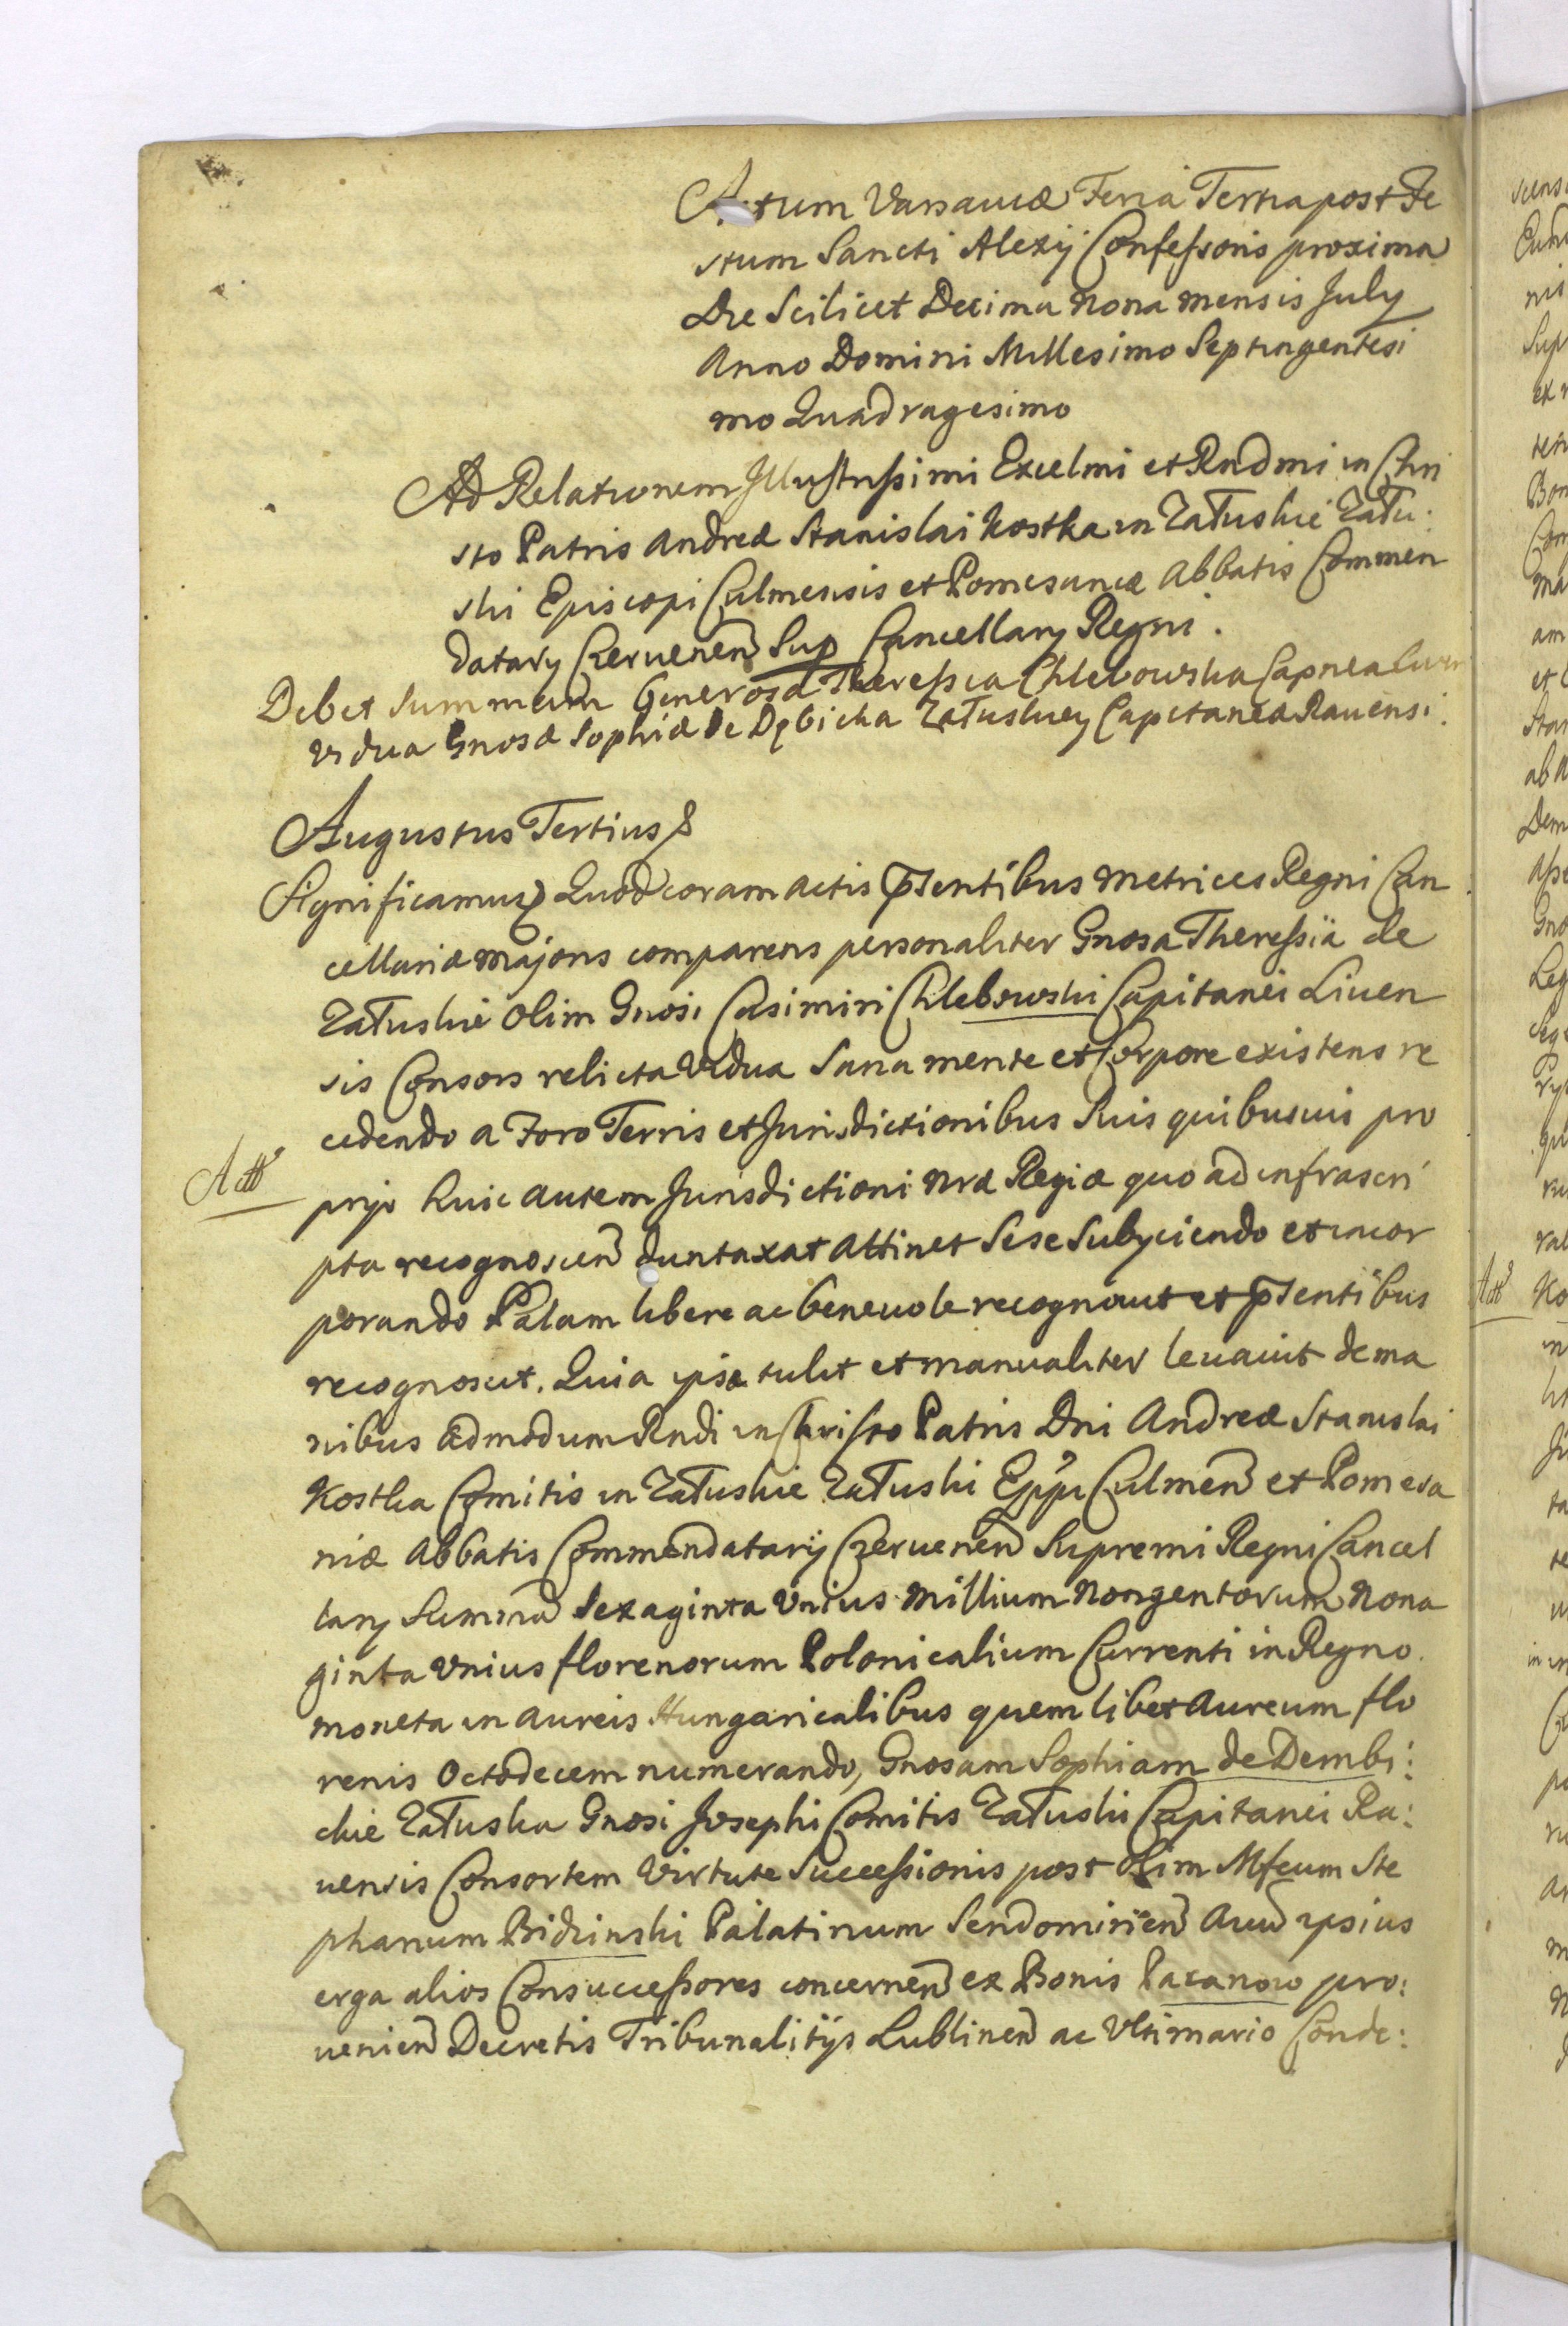 Actum Varsaviæ Feria Tertia post Fe
stum Sancti Alexij Confessoris proxima
Die Scilicet Decima Nona mensis July
Anno Domini Millesimo Septingentesi
mo Quadragesimo
Ad Relationem Illustrissimi Excelmi et Rndmi in Chri
sto Patris Andreæ Stanislai Kostka in Załuskie Zału:
ski Episcopi Culmensis et Pomesaniæ Abbatis Commen
datary Czervenen Sup Cancellary Regni.
Debet Summam Generosa Theressia Chlebowska Capnea Liven
Vidua Gnosæ Sophiæ De Dębicka Załuskiey Capitanea Ravensi.
Augustus Tertius &
Significamus Quod coram actis pñtentibus Metrices Regni Can
cellariæ Majoris comparens personaliter Gnosa Theressia de
Załuskie olim Gnosi Casimiri Chlebowski Capitanei Liven
sis Consors relicta Vidua Sana mente et Corpore existens re
cedendo a Foro Terris et Jurisdictionibus Suis quibusvis pro
prijs huic autem Jurisdictioni Nræ Regiæ quo ad infrascri
Actt
pta recognoscen duntaxat attinet Sese Subyciendo et incor
porando Palam libere ac benevole recognovit et pñtentibus
recognoscit. Quia ipsa tulit et manualiter levavit de ma
nibus Admodum Rndi in Christo Patris Dni Andreæ Stanislai
Kostka Comitis in Załuskie Załuski Eppi Culmen et Pomesa
niæ Abbatis Commendatarij Czervenen Supremi Regni Cancel
lary Summa Sexaginta Unius Millium Nongentorum Nona
ginta Unius florenorum Polonicalium Currenti in Regno
moneta in aureis Hungaricalibus quemlibet Aureum flo
renis Octodecem numerando, Gnosam Sophiam de Dembi:
ckie Załuska Gnosi Josephi Comitis Załuski Capitanei Ra:
vensis Consortem Virtute Successionis post olim Mfcum Ste
phanum Bidzinski Palatinum Sendomirien Avum ipsius
erga alios Consuccessores concernen ex Bonis Pacanow pro:
venien Decretis Tribunalitijs Lublinen ac Ultimario Conde: